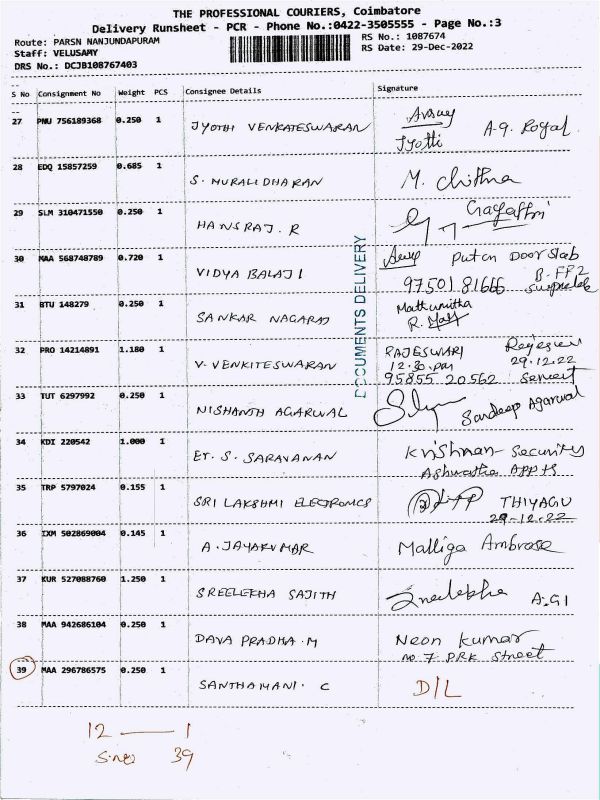 THE PROFESSIONAL COURIERS, Coimbatore
Delivery Runsheet - PCR - Phone No.:0422-3505555 - Page No.:3
Route: PARSN NANJUNDAPURAM
Staff: VELUSAMY
DRS No.: DCJB108767403
RS No.: 1087674
RS Date: 29-Dec-2022
S No Consignment No Weight PCS Consignee Details Signature
27 PNU 756189368 0.250 1 JYOTHI VENKATESWARAN Jyotti A.9. Royal
28 EDQ 15857259 0.685 1 S. MURALIDHARAN M. Chithra
29 SLM 310471550 0.250 1 HANSRAJ. R Gayathri
30 MAA 568748789 0.720 1 VIDYA BALAJI Put on Door slab
97501 81666 B. FF2
31 BTU 148279 0.250 1 SANKAR NAGARAJ
32 PRO 14214891 1.180 1 V. VENKITESWARAN RAJESWARI
12.30.pm 29.12.22
95855 20562 Servent
33 TUT 6297992 0.250 1 NISHANTH AGARWAL Sandeep Agarwal
34 KDI 220542 1.000 1 ET. S. SARAVANAN Krishnan - Security
35 TRP 5797024 0.155 1 SRI LAKSHMI ELECTRONICS THIYAGU
29-12-22
36 IXM 502869004 0.145 1 A. JAYAKUMAR Malliga Ambrose
37 KUR 527088760 1.250 1 SREELEKHA SAJITH Sreelekha A.G1
38 MAA 942686104 0.250 1 DAVA PRADHA. M Neon Kumar
no. 7 PRK Street
39 MAA 296786575 0.250 1 SANTHAMANI. C D/L
DOCUMENTS DELIVERY
12 — 1
39